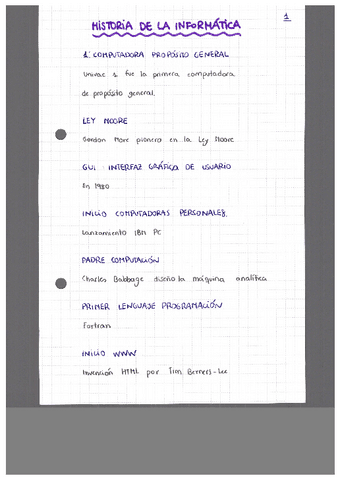 1
HISTORIA DE LA INFORMÁTICA
1ª COMPUTADORA PROPÓSITO GENERAL
Univac 1 fue la primera computadora
de propósito general.
LEY MOORE
Gordon More pionero en la Ley Moore
GUI: INTERFAZ GRÁFICA DE USUARIO
En 1980
INICIO COMPUTADORAS PERSONALES.
Lanzamiento IBM PC
PADRE COMPUTACIÓN
Charles Babbage diseño la máquina analítica
PRIMER LENGUAJE PROGRAMACIÓN
Fortran
INICIO WWW
Invención HTML por Tim Berners-Lee